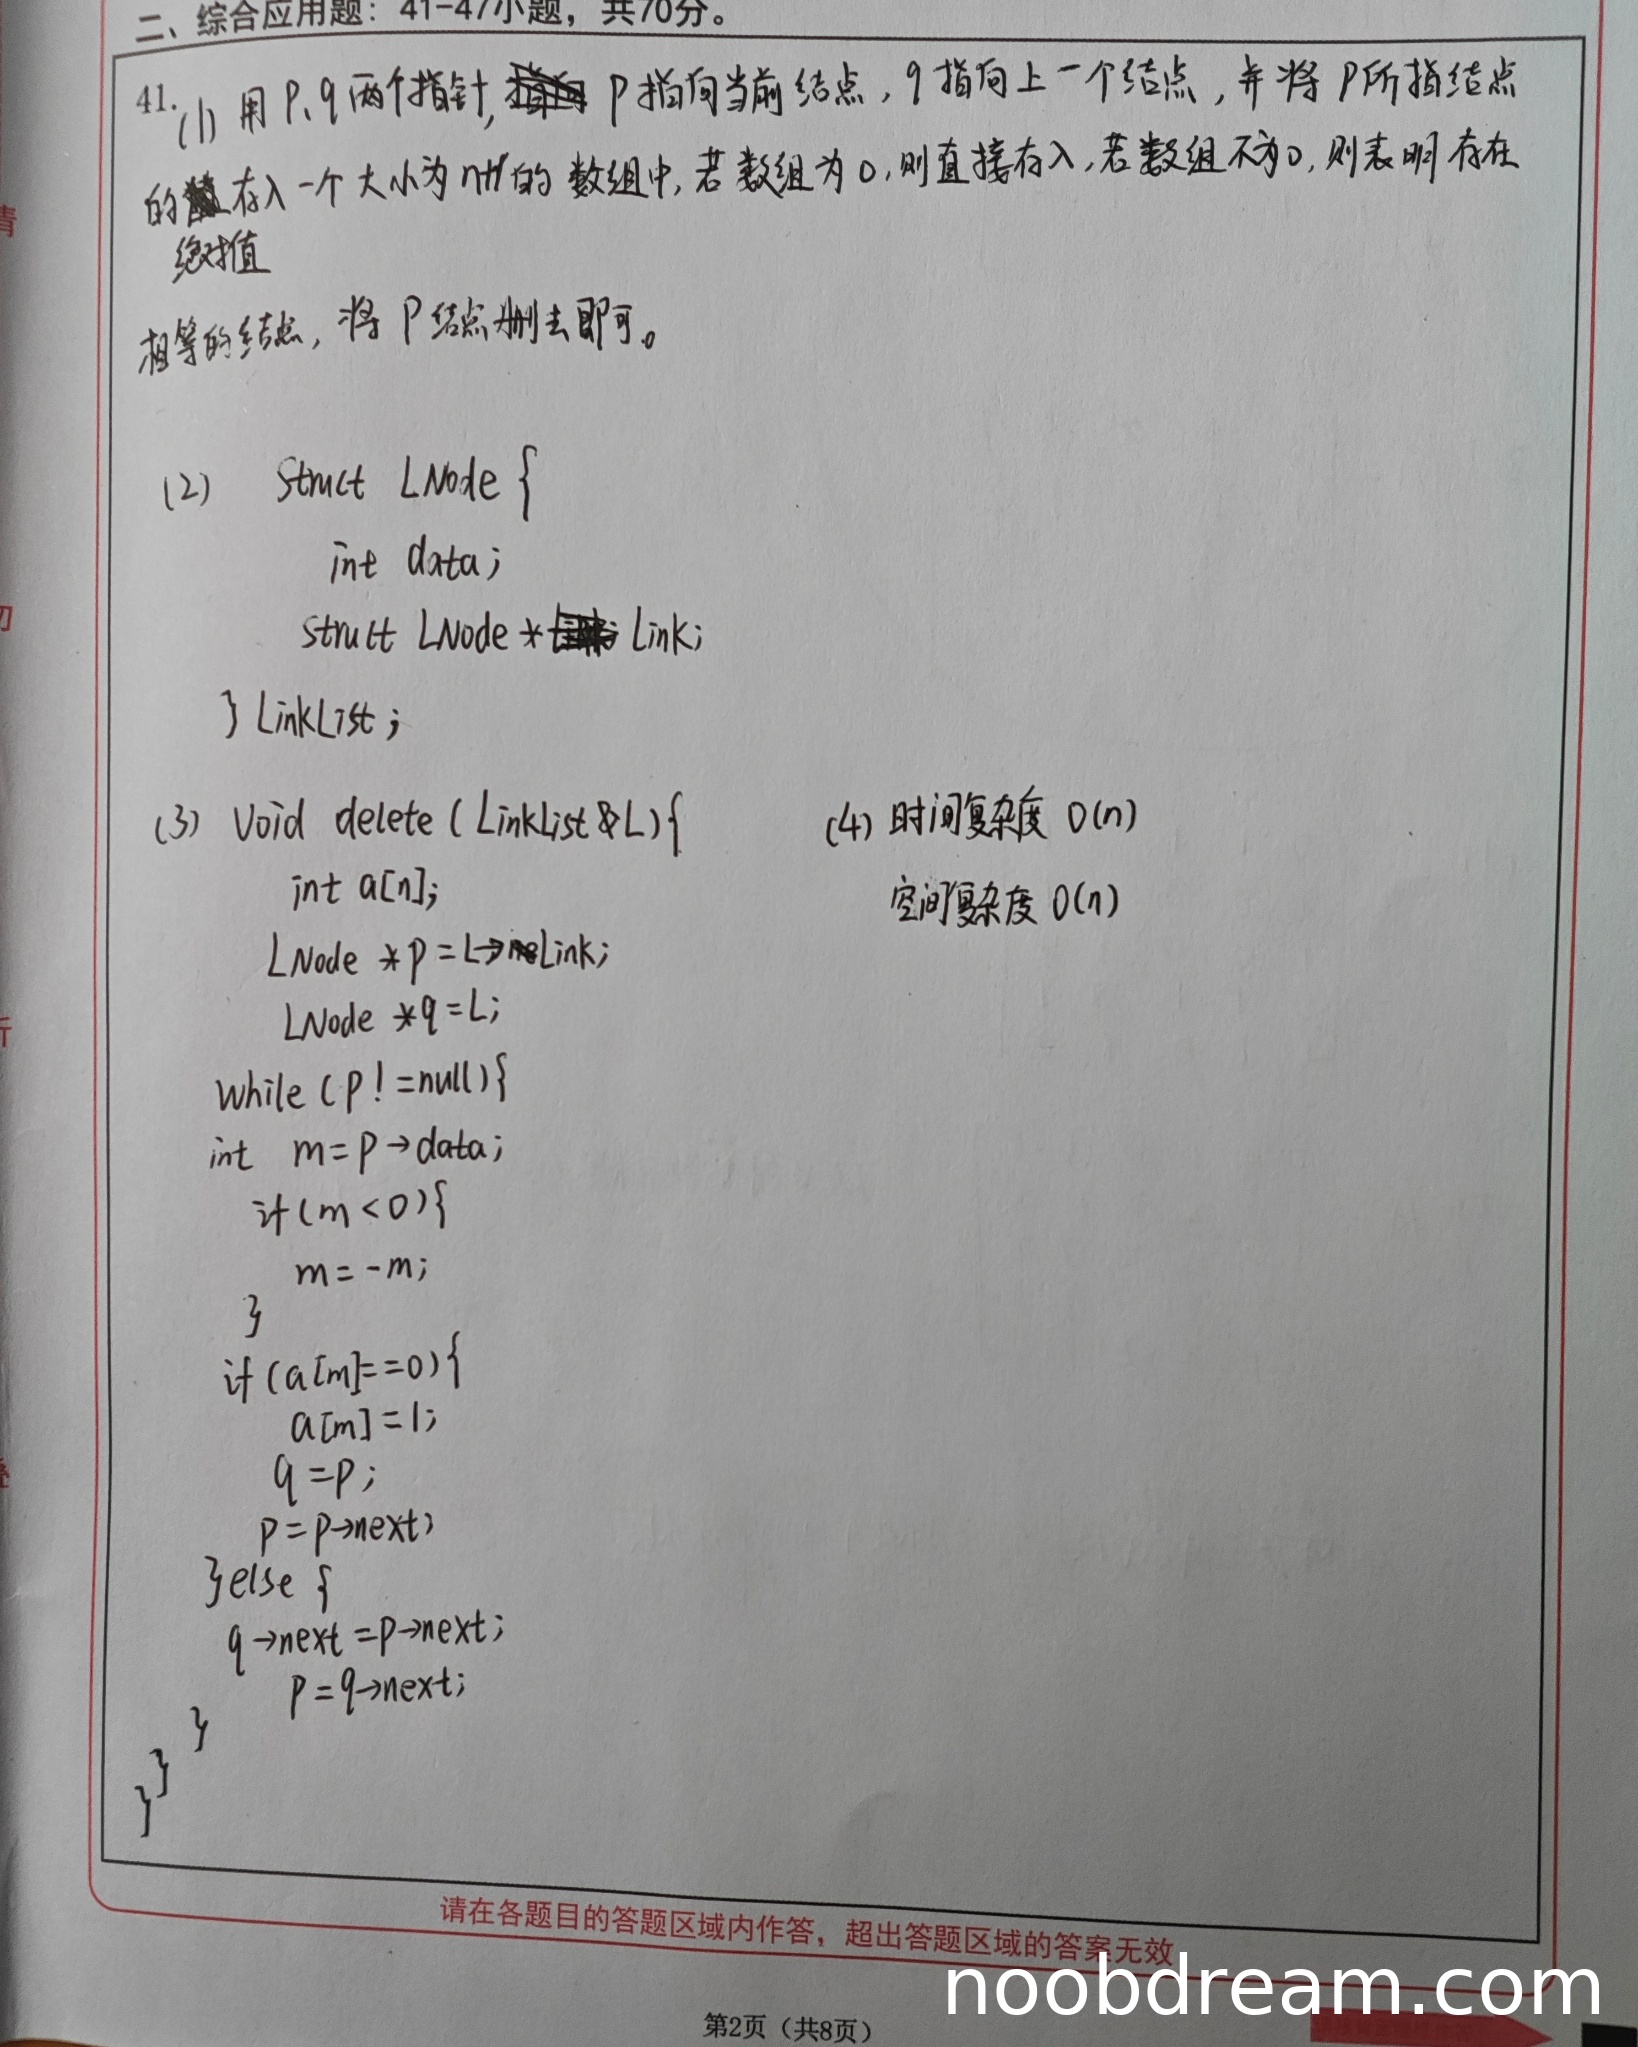 二、综合应用题：41-47小题，共70分。
41.
(1) 用P、q两个指针, P指向当前结点，q指向上一个结点，并将P所指结点
的绝对值存入一个大小为n+1的数组中，若数组为0，则直接存入，若数组不为0，则表明存在
相等的结点，将P结点删去即可。
(2) Struct LNode {
int data;
struct LNode * Link;
} LinkList ;
(3) Void delete ( LinkList &L ) {
int a[n];
LNode *p = L→Link;
LNode *q = L;
While ( p != null ) {
int m = p→data;
if ( m < 0 ) {
m = -m;
}
if ( a[m] == 0 ) {
a[m] = 1;
q = p;
p = p→next;
} else {
q→next = p→next;
p = q→next;
}
}
}
(4) 时间复杂度 O(n)
空间复杂度 O(n)
请在各题目的答题区域内作答，超出答题区域的答案无效
第2页（共8页）
noobdream.com